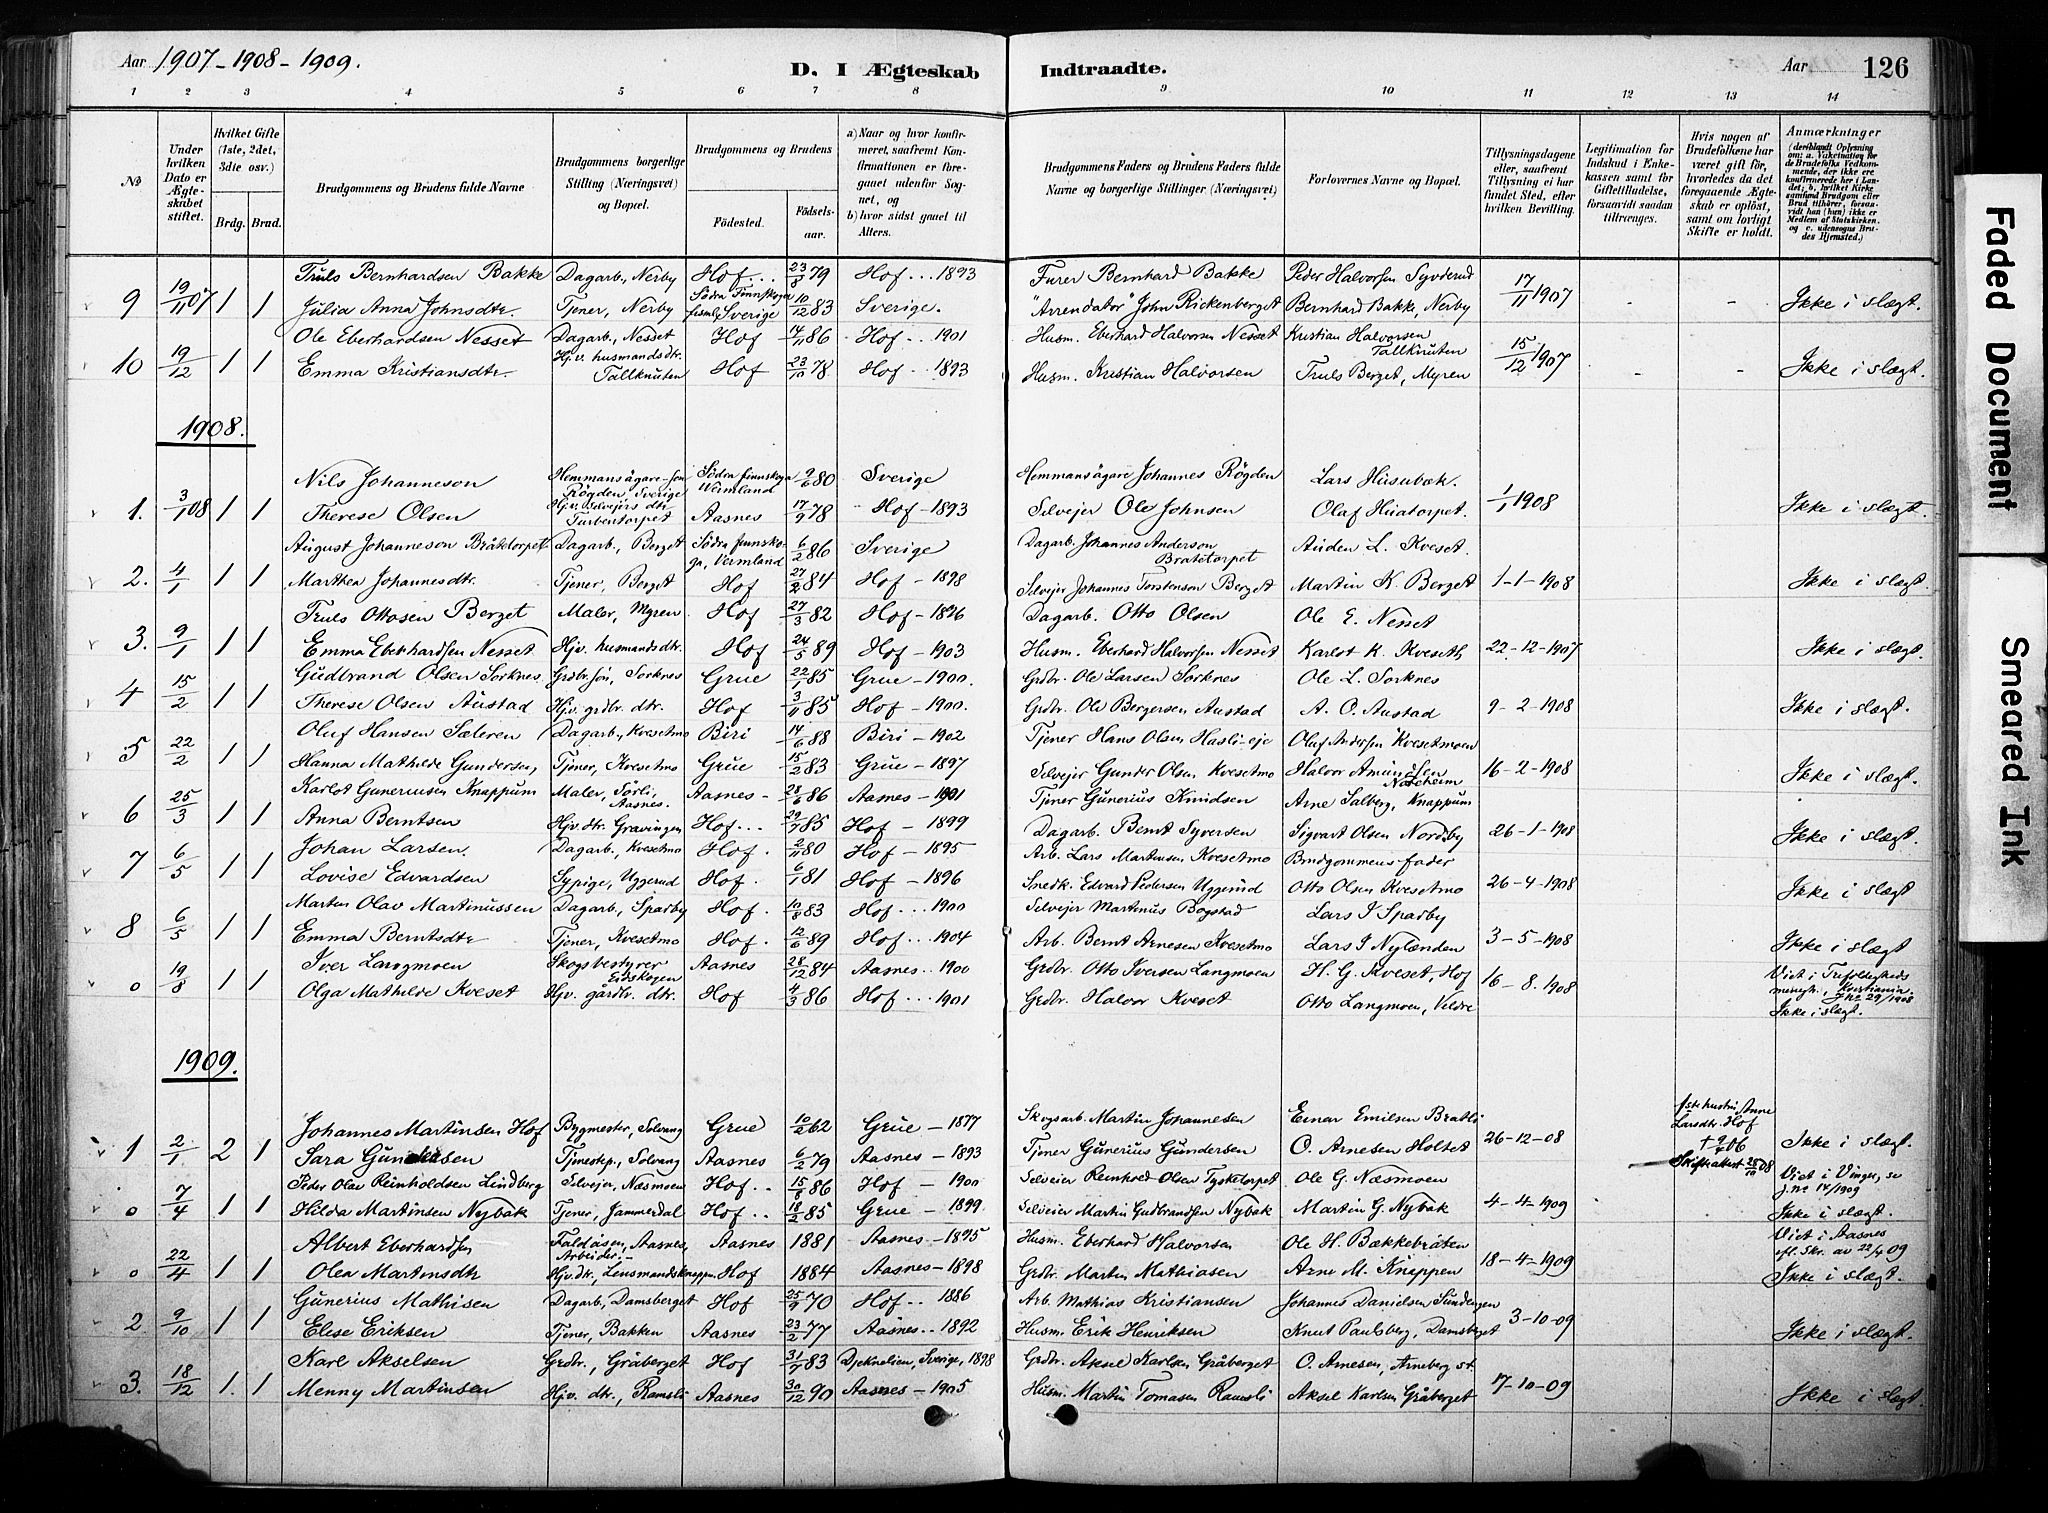 Aar 1907-1908-1909.
D. I Ægteskab Indtraadte.
Aar 126
1 2 3 4 5 6 7 8 9 10 11 12 13 14
No
Under hvilken Dato er Ægteskabet stiftet.
Hvilket Gifte (1ste, 2det, 3die osv.)
Brdg. Brud.
Brudgommens og Brudens fulde Navne
Brudgommens borgerlige Stilling (Næringsvei) og Bopæl.
Brudgommens og Brudens
Fødested. Fødselsaar.
a) Naar og hvor konfirmeret, saafremt Konfirmationen er foregaaet udenfor Sognet, og
b) hvor sidst gaaet til Alters.
Brudgommens Faders og Brudens Faders fulde Navne og borgerlige Stillinger (Næringsvei)
Forlovernes Navne og Bopæl.
Tillysningsdagene eller, saafremt Tillysning ei har fundet Sted, efter hvilken Bevilling.
Legitimation for Indskud i Enkekassen samt for Giftetilladelse, forsaavidt saadan tiltrænges.
Hvis nogen af Brudefolkene har været gift før, hvorledes da det foregaaende Ægteskab er opløst, samt om lovligt Skifte er holdt.
Anmærkninger (deriblandt Oplysning om: a. Vaccination for de Brudefolks Vedkommende, der ikke ere konfirmerede her i Landet; b. hvilket Kirkesamfund Brudgom eller Brud tilhører, forsaavidt han (hun) ikke er Medlem af Statskirken, og c. udensogns Brudes Hjemsted.)
Truls Bernhardsen Bakke Dagarb., Nerby Hof... 23/8 79 Hof... 1893 Furer Bernhard Bakke Peder Halvorsen Syvderud
9 19/11 07 1 1 Julia Anna Johnsdtr. Tjener, Nerby Södra Finnskoga Sverige 10/12 83 Sverige. "Arrendator" John Rickenberget Bernhard Bakke, Nerby 17/11 1907 - - Ikke i slægt.
Ole Eberhardsen Nesset Dagarb., Nesset Hof 14/11 86 Hof.. 1901 Husm. Eberhard Halvorsen Nesset Kristian Halvorsen Tallknuten
10 19/12 1 1 Emma Kristiansdtr. Hjv. husmandsdtr. Tallknuten Hof 23/10 78 Hof... 1893 Husm. Kristian Halvorsen Truls Berget, Myren 15/12 1907 - - Ikke i slægt.
1908.
Nils Johanneson Hemmansägare-son Rögden, Sverige Södra finnskoga Wermland 9/6 80 Sverige Hemmansägare Johannes Rögden Lars Husubæk.
1. 3/1 08 1 1 Therese Olsen Hjv. Selvejers dtr. Furbentorpet Aasnes 17/9 78 Hof - 1893 Selvejer Ole Johnsen Olaf Huatorpet. 1/1 1908 Ikke i slægt.
August Johanneson Bråtetorpet Dagarb., Berget Södra finnskoga, Vermland 6/2 86 Sverige Dagarb. Johannes Anderson Bratetorpet Auden L. Kveset.
2. 4/1 1 1 Marthea Johannesdtr. Tjener, Berget Hof 27/2 84 Hof - 1898 Selvejer Johannes Torstenson Berget Martin K. Berget 1-1-1908 Ikke i slægt.
Truls Ottosen Berget Maler, Myren Hof 27/3 82 Hof - 1896 Dagarb. Otto Olsen Ole E. Nesset
3. 9/1 1 1 Emma Eberhardsen Nesset Hjv. husmandsdtr. Hof 24/5 89 Hof - 1903 Husm. Eberhard Halvorsen Nesset Karlot K. Kveseth 22-12-1907 Ikke i slægt.
Gudbrand Olsen Sorknes. Grdbr. søn, Sorknes Grue 22/1 85 Grue - 1900. Grdbr. Ole Larsen Sorknes Ole L. Sorknes
4 15/2 1 1 Therese Olsen Austad Hjv. grdbr. dtr. Hof 3/11 85 Hof - 1900. Grdbr. Ole Bergersen Austad A. O. Austad 9-2-1908 Ikke i slægt.
Oluf Hansen Sæteren Dagarb., Kvesetmo Biri 14/6 88 Biri - 1902 Tjener Hans Olsen Hasli-eje Olaf Andersen Kvesetmoen
5 22/2 1 1 Hanna Mathilde Gundersen, Tjener, Kvesetmo Grue 15/2 83 Grue - 1897 Selvejer Gunder Olsen Kvesetmo Halvor Amundsen Norheim 16-2-1908 Ikke i slægt.
Karlot Guneriusen Knappum Maler, Sörli, Aasnes. Aasnes - 28/6 86 Aasnes - 1901 Tjener Gunerius Knudsen Arne Salberg, Knappum
6 25/3 1 1 Anna Berntsen Hjv. dtr. Gravingen Hof... 29/7 85 Hof - 1899 Dagarb. Bernt Syversen Sigvart Olsen Nordsby 26-1-1908 Ikke i slægt.
Johan Larsen. Dagarb., Kvesetmo Hof. 2/11 80 Hof - 1895 Arb. Lars Martinsen Kvesetmo Brudgommens fader
7 6/5 1 1 Lovise Edvardsen Sypige, Uggerud Hof. 6/1 81 Hof - 1896 Snedk. Edvard Pedersen Uggerud Otto Olsen Kvesetmo 26-4-1908 Ikke i slægt.
Martin Olav Martinussen Dagarb., Sparby Hof. 10/8 83 Hof.. 1900 Selvejer Martinus Bogstad Lars J Sparby
8 6/5 1 1 Emma Berntsdtr Tjener, Kvesetmo Hof. 12/6 89 Hof... 1904 Arb. Bernt Arnesen Kvesetmo Lars J Nylenden 3-5-1908 Ikke i slægt
Iver Langmoen Skogsbestyrer Eidskogen Aasnes 28/12 84 Aasnes.. 1900 Grdbr. Otto Iversen Langmoen H. G. Kveset, Hof Viet i Trefoldigheds menigh., Kristiania. J.no 29/1908
0 19/8 1 1 Olga Mathilde Kveset Hjv. gårdbr. dtr. Hof 4/3 86 Hof... 1901 Grdbr. Halvor Kveset Otto Langmoen, Veldre 16-8.1908 Ikke i slægt.
1909.
Johannes Martinsen Hof Bygmester, Solvang Grue 10/2 62 Grue - 1877 Skogsarb. Martin Johannesen Einar Emilsen Bratli 1ste hustru Anne Larsdtr. Hof
1 2/1 2 1 Sara Gundersen Tjenestep., Solvang Aasnes 6/2 79 Aasnes - 1893 Tjener Gunerius Gundersen O. Arnesen Holtet 26-12-08 † 9/4 06 Skifteattest 28/10 08 Ikke i slægt.
Peder Olav Reinholdsen Lindberg Selvejer, Næsmoen Hof.. 15/8 86 Hof - 1900 Selveier Reinhold Olsen Tysketorpet Ole G. Næsmoen Viet i Vinger, se J.no 14/1909
0 7/4 1 1 Hilda Martinsen Nybak Tjener, Jammerdal Hof.. 18/2 85 Grue - 1899. Selveier Martin Gudbrandsen Nybak Martin G. Nybak 4-4-1909 Ikke i slægt.
Albert Eberhardsen Faldåsen, Aasnes, Arbeider.- Aasnes 1881 Aasnes - 1895 Husm. Eberhard Halvorsen Ole H. Bækkebråten Viet i Aasnes efl. Skr. av 22/4 09
0 22/4 1 1 Olea Martinsdtr Hjv. dtr., Lensmandsknappen Hof 1884 Aasnes - 1898 Grdbr. Martin Mathiasen Arne M. Knappen 18-4-1909 Ikke i slægt.
Gunerius Mathisen Dagarb., Damsberget Hof 25/9 70 Hof.. 1886 Arb. Mathias Kristiansen Johannes Danielsen Sundengen
2. 9/10 1 1 Elise Eriksen Tjener, Bakken Aasnes 23/2 77 Aasnes.. 1892 Husm. Erik Henriksen Knut Paulsberg, Damsberget 3-10-09 Ikke i slægt.
Karl Akselsen Grdbr., Gråberget Hof 31/7 83 Djekneliden, Sverige, 1898 Grdbr. Aksel Karlsen Gråberget O. Arnesen, Arneberg st.
3. 18/12 1. 1 Menny Martinsen Hjv. dtr., Ramsli Aasnes 30/12 90 Aasnes - 1905 Husm. Martin Tomasen Ramsli Aksel Karlsen Gråberget 7-10-09 Ikke i slægt.
Faded Document
Smeared Ink